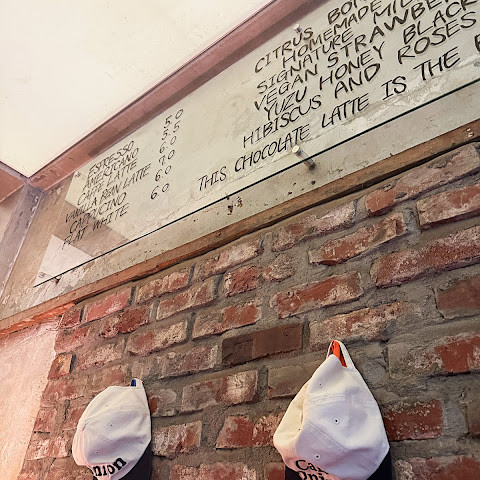 ESPRESSO 5.0
AMERICANO 5.0
CAFE LATTE 6.0
VANILLA BEAN LATTE 7.0
CAPPUCINO 6.0
FLAT WHITE 6.0
CITRUS
HOMEMADE
SIGNATURE
VEGAN STRAWBE
YUZU HONEY BLACK
HIBISCUS AND ROSES
THIS CHOCOLATE LATTE IS THE
nion